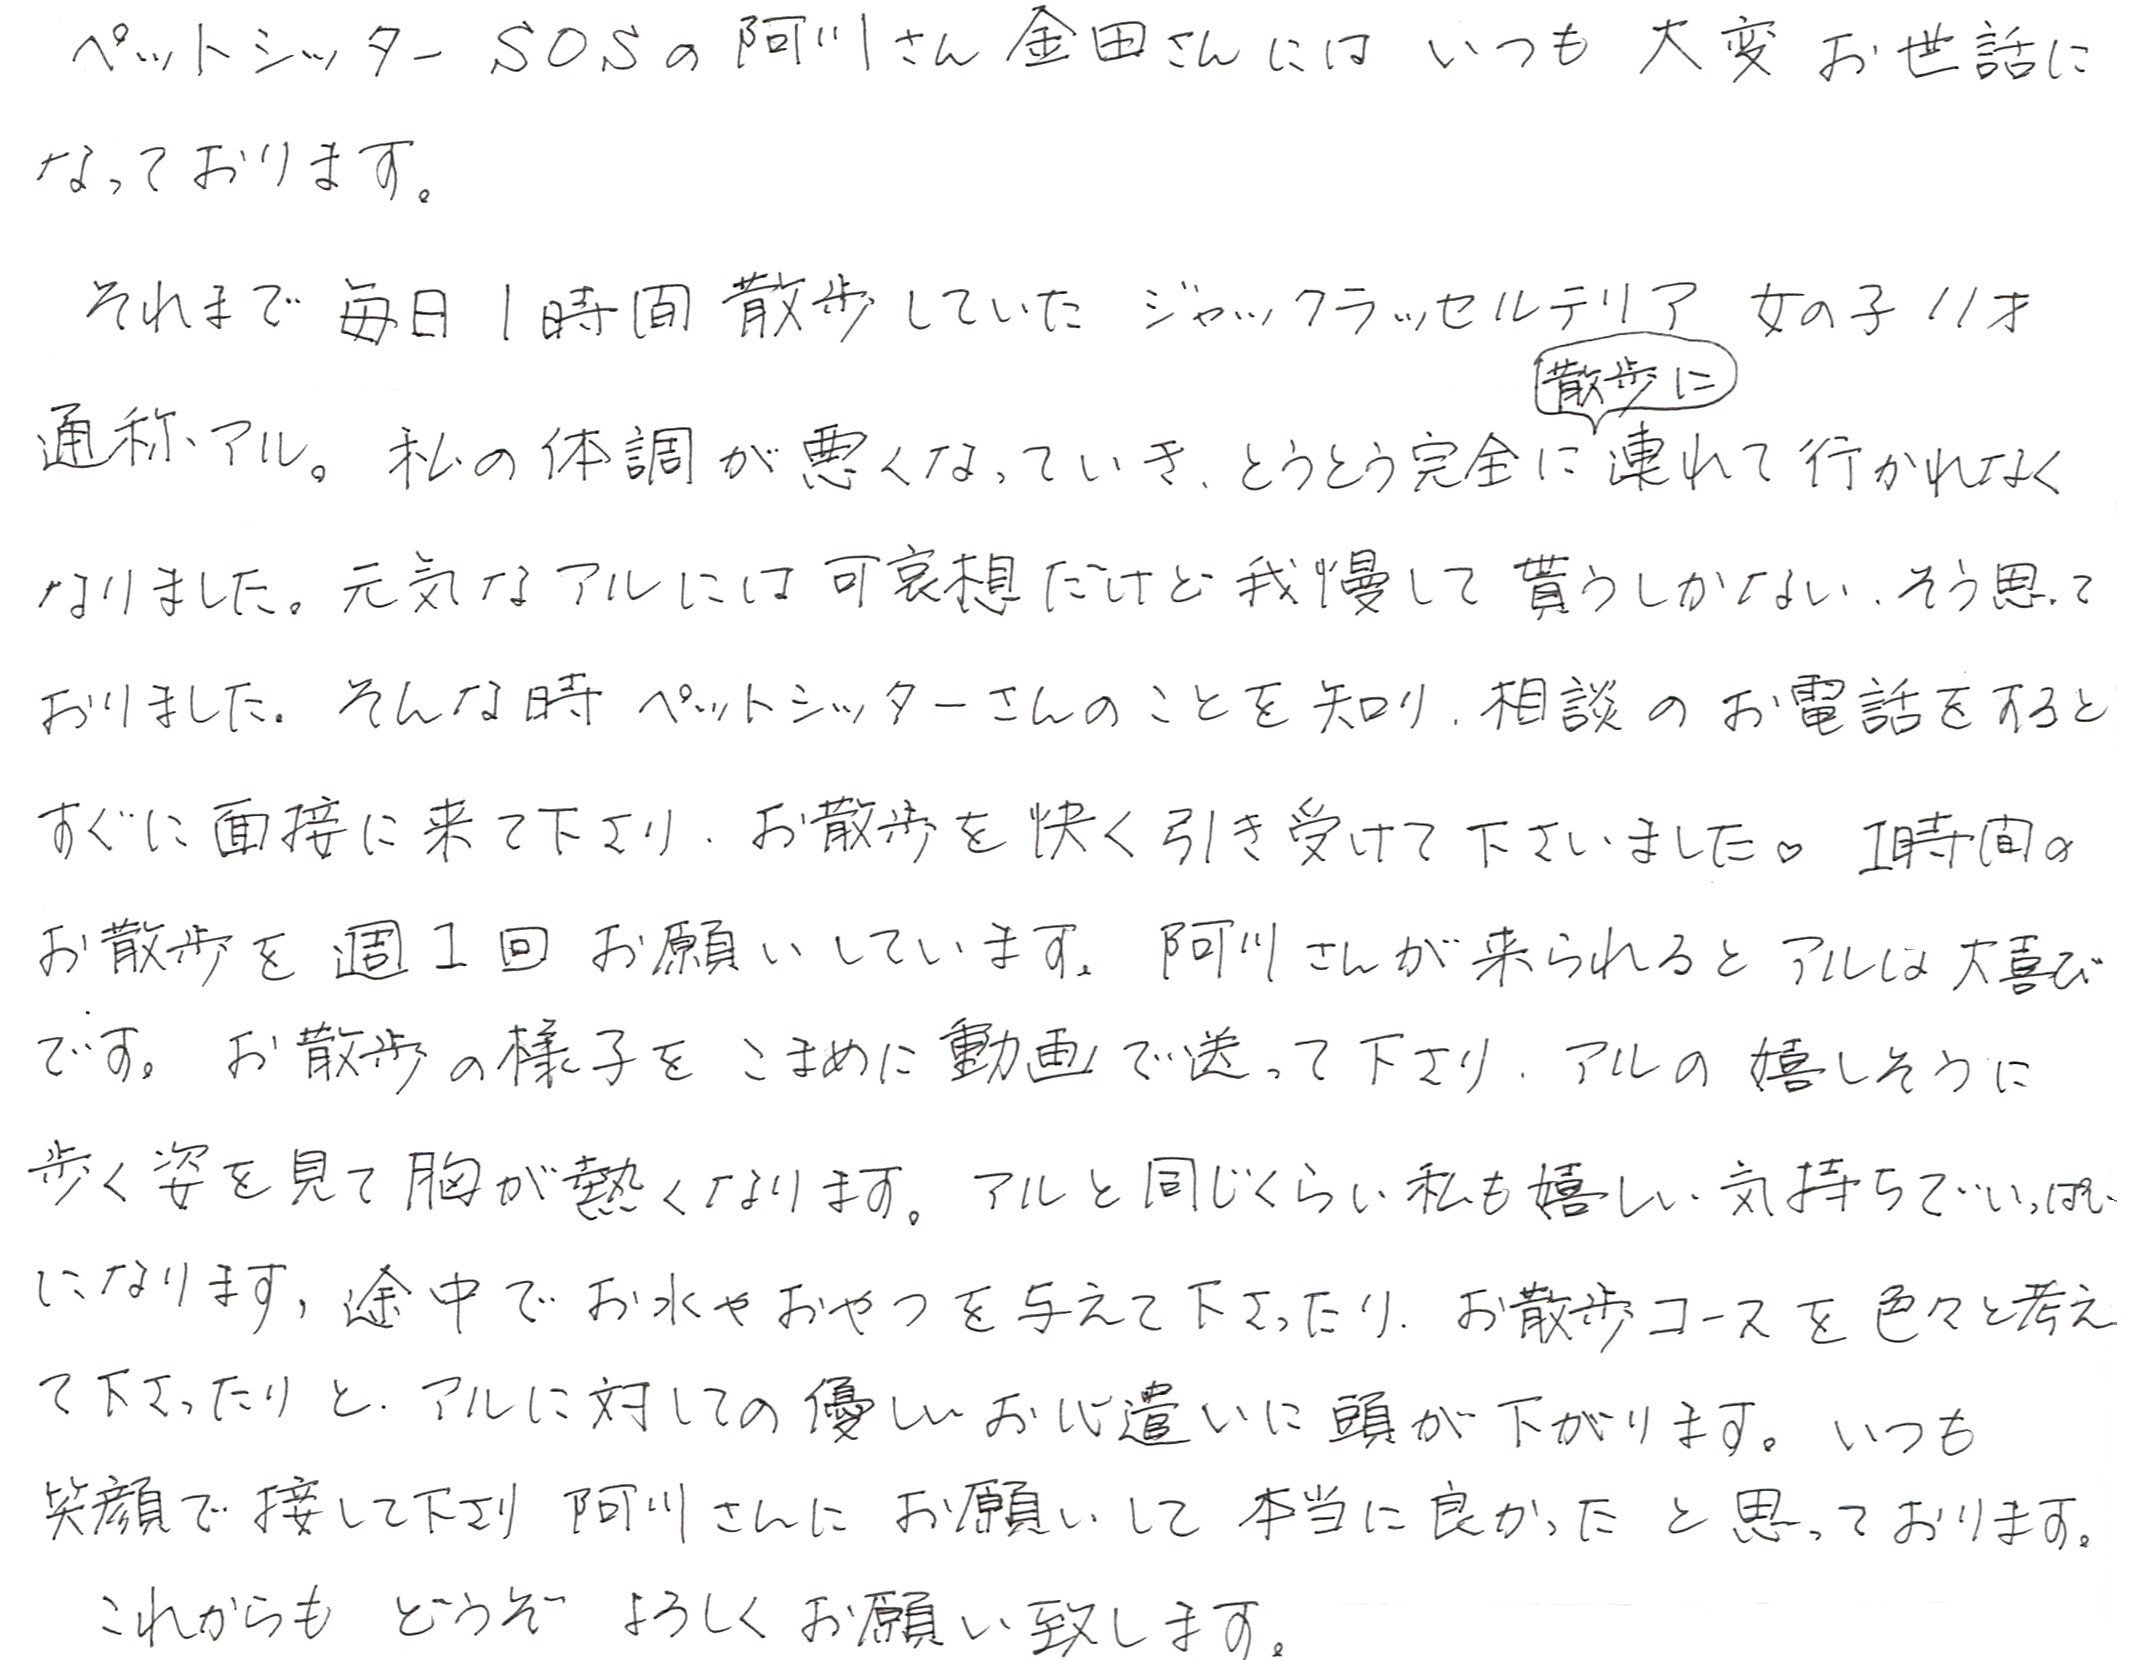 ペットシッターSOSの阿川さん金田さんには いつも 大変お世話に
なっております。
それまで毎日1時間散歩していた ジャックラッセルテリア 女の子 11才
散歩に
通称、アル。私の体調が悪くなっていき、とうとう完全に連れて行かれなく
なりました。元気なアルには可哀想だけど我慢して貰うしかない、そう思って
おりました。そんな時ペットシッターさんのことを知り、相談のお電話をすると
すぐに面接に来て下さり、お散歩を快く引き受けて下さいました♡ 1時間の
お散歩を週1回お願いしています。阿川さんが来られるとアルは大喜び
です。お散歩の様子をこまめに動画で送って下さり、アルの嬉しそうに
歩く姿を見て胸が熱くなります。アルと同じくらい私も嬉しい気持ちでいっぱい
になります。途中でお水やおやつを与えて下さったり、お散歩コースを色々と考え
て下さったりと、アルに対しての優しいお心遣いに頭が下がります。いつも
笑顔で接して下さり阿川さんにお願いして本当に良かったと思っております。
これからも どうぞ よろしくお願い致します。